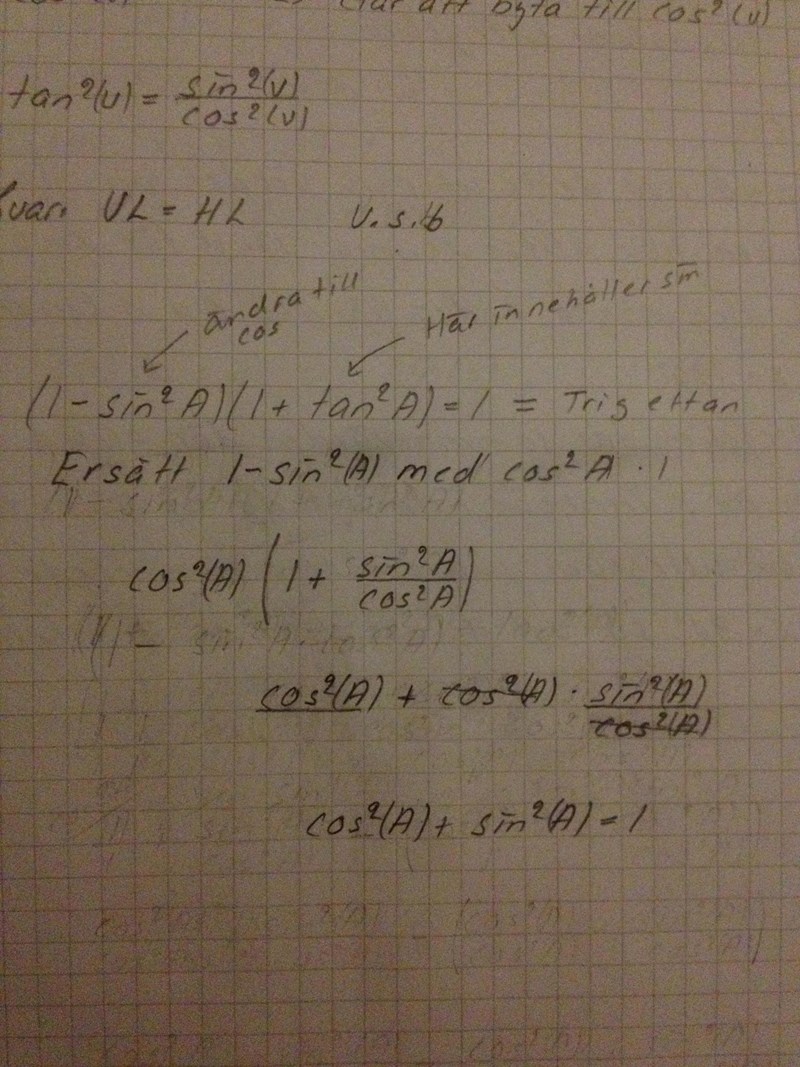 att byta till cos²(v)
tan²(v) = sin²(v) / cos²(v)
VL = HL V.s.b
ändra till
cos
Här innehåller sin
(1 - sin² A)(1 + tan² A) = 1 = Trig ettan
Ersätt 1 - sin²(A) med cos² A · 1
cos²(A) (1 + sin² A / cos² A)
cos²(A) + cos²(A) · sin²(A) / cos²(A)
cos²(A) + sin²(A) = 1